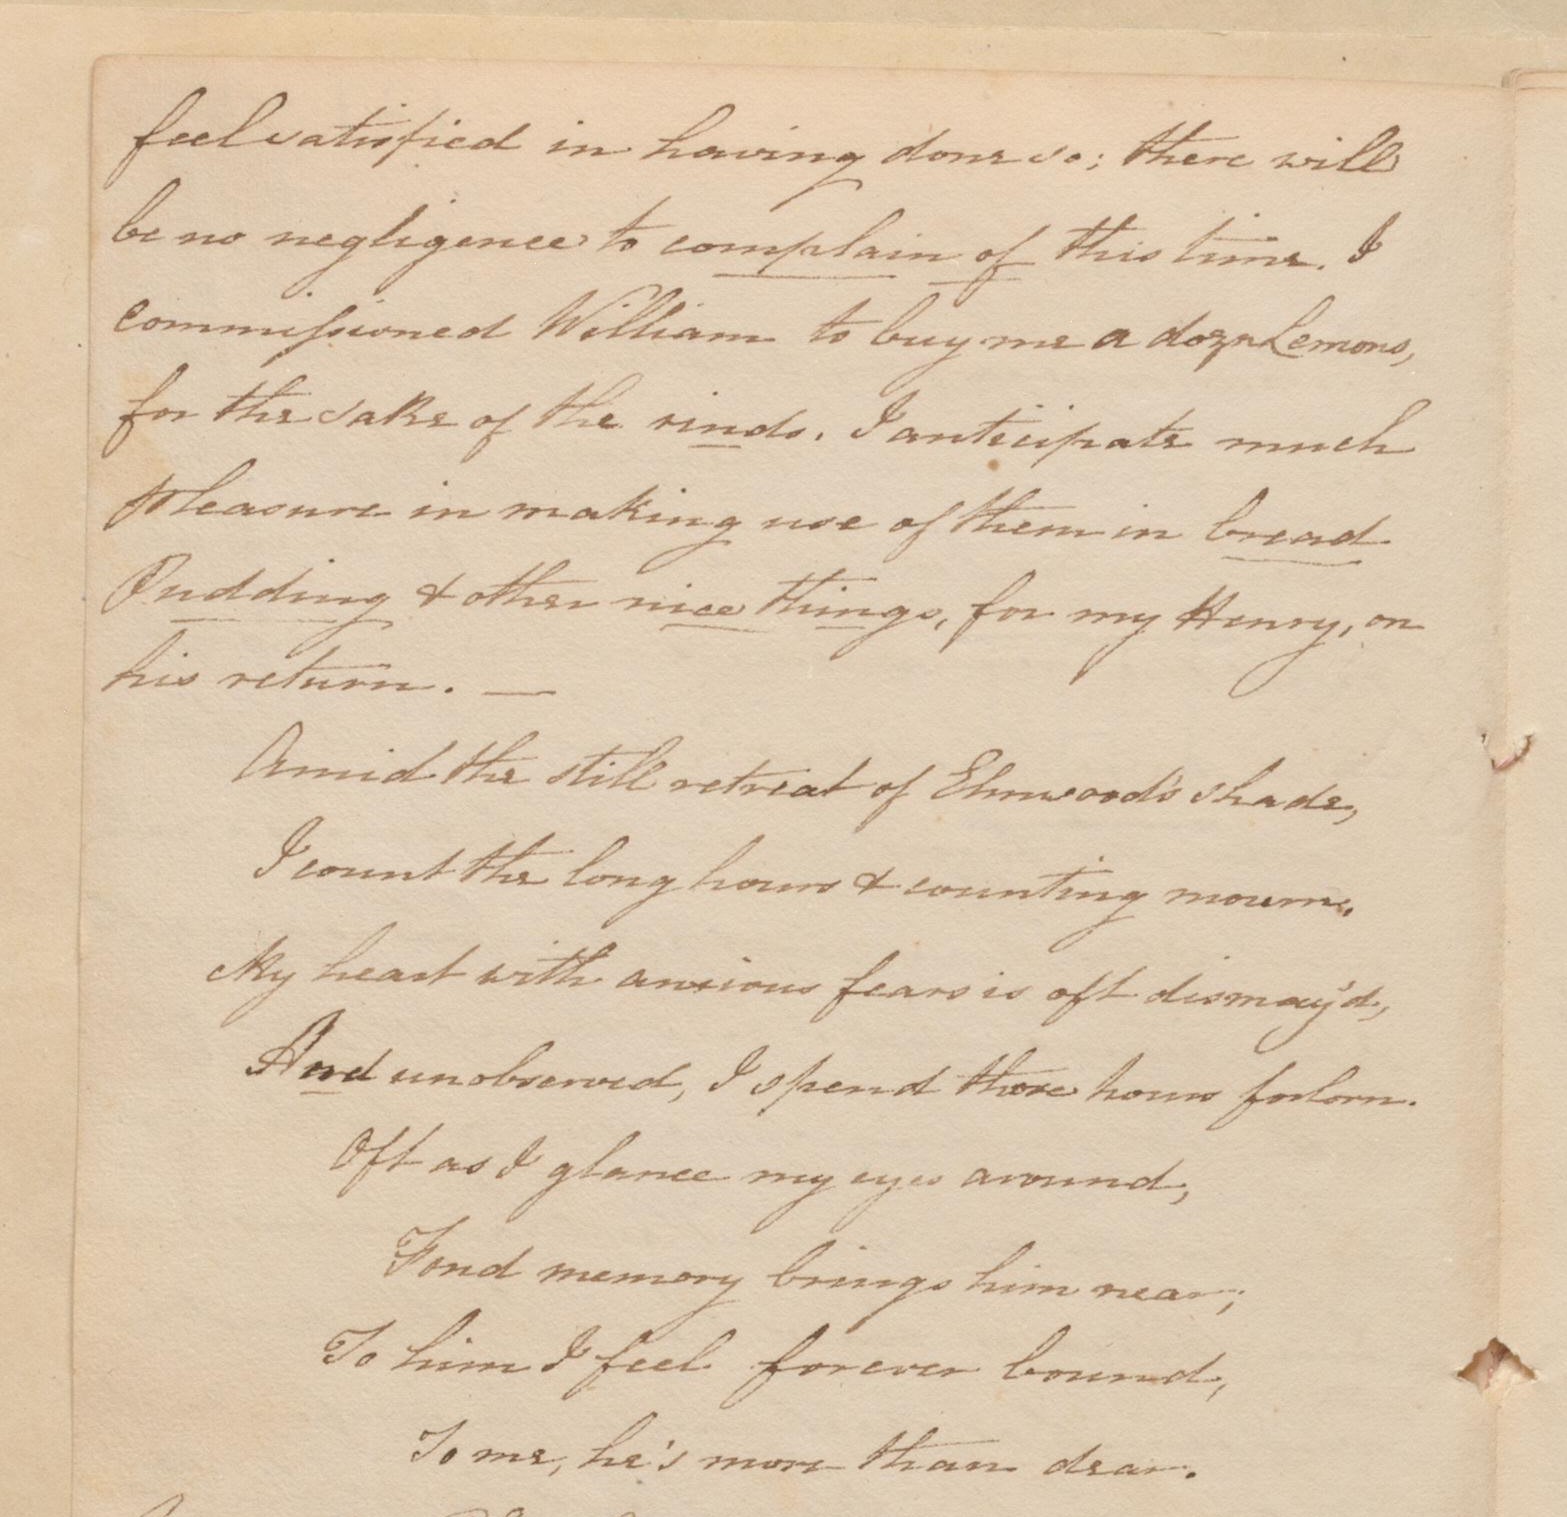 feel satisfied in having done so; there will
be no negligence to complain of this time. I
commissioned William to buy me a dozn Lemons,
for the sake of the rinds. I anticipate much
pleasure in making use of them in bread
Pudding & other nice things, for my Henry, on
his return. —
Amid the still retreat of Elmwood's shade,
I count the long hours & counting mourn.
My heart with anxious fears is oft dismay'd,
And unobserved, I spend those hours forlorn.
Oft as I glance my eyes around,
Fond memory brings him near;
To him I feel forever bound,
To me, he's more than dear.